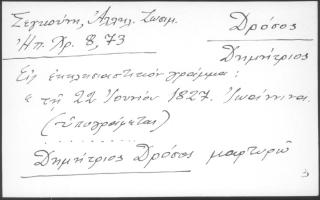 Σεγκούνη, Ἀλληλ. Ζωσιμ.
Ἠπ. Χρ. 8, 73
Δρόσος
Δημήτριος
Εἰς ἐκκλησιαστικὸν γράμμα:
" τῇ 22 Ἰουνίου 1827. Ἰωάννινα.
(ὑπογράφεται)
Δημήτριος Δρόσος μαρτυρῶ